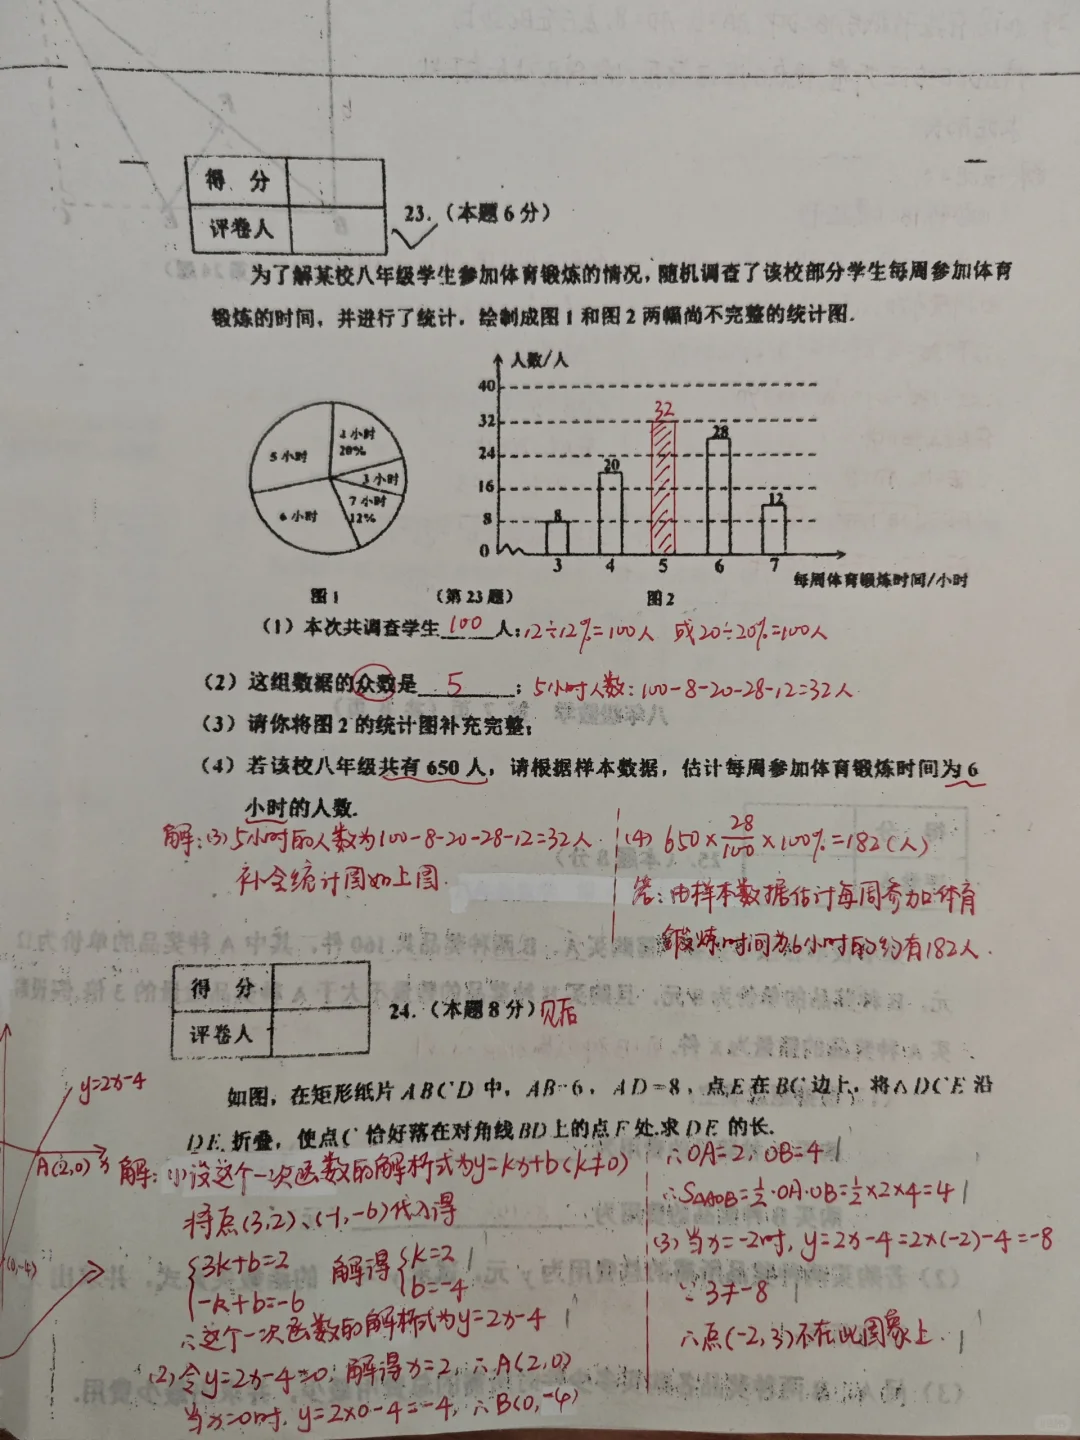 得 分
评卷人
23.（本题6分）
为了解某校八年级学生参加体育锻炼的情况，随机调查了该校部分学生每周参加体育
锻炼的时间，并进行了统计，绘制成图1和图2两幅尚不完整的统计图.
人数/人
40
32
24
16
8
0
8
20
32
28
12
3 4 5 6 7
每周体育锻炼时间/小时
4小时
20%
3小时
7小时
12%
6小时
5小时
图1
（第23题）
图2
（1）本次共调查学生100人；12÷12%=100人 或20÷20%=100人
（2）这组数据的众数是5；5小时人数：100-8-20-28-12=32人
（3）请你将图2的统计图补充完整；
（4）若该校八年级共有650人，请根据样本数据，估计每周参加体育锻炼时间为6
小时的人数.
解：(3)5小时的人数为100-8-20-28-12=32人
补全统计图如上图.
(4) 650×28/100×100%=182(人)
答：由样本数据估计每周参加体育
锻炼时间为6小时的约有182人.
得 分
评卷人
24.（本题8分）见后
如图，在矩形纸片ABCD中，AB=6，AD=8，点E在BC边上，将△DCE沿
DE折叠，使点C恰好落在对角线BD上的点F处.求DE的长.
y=2x-4
A(2,0) x
(0,-4)
解：(1)设这个一次函数的解析式为y=kx+b(k≠0)
将点(3,2)、(-1,-6)代入得
{3k+b=2
-k+b=-6
解得{k=2
b=-4
∴这个一次函数的解析式为y=2x-4
(2)令y=2x-4=0，解得x=2，∴A(2,0)
当x=0时，y=2×0-4=-4，∴B(0,-4)
∴OA=2，OB=4
∴S△AOB=½·OA·OB=½×2×4=4
(3)当x=-2时，y=2x-4=2×(-2)-4=-8
∵3≠-8
∴点(-2,3)不在此图象上.